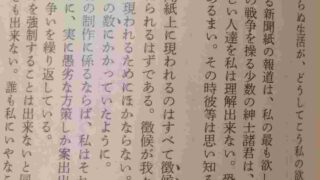 らぬ生活が、どうしてこう私の欲
る新聞紙の報道は、私の最も欲し
の戦争を操る少数の紳士諸君は、
しい人達を私は理解出来ない。恐
あるまい。その時彼等は思い知
紙上に現われるのはすべて徴候
られるはずである。徴候が我か
現われるためにほかならない。
の数にかかっていたように。
の制作に係るならば、私はそ
に、実に愚劣な方策しか案出出
争いを繰り返している。
を強制することは出来ないと同
も出来ない。誰も私にいやなこ